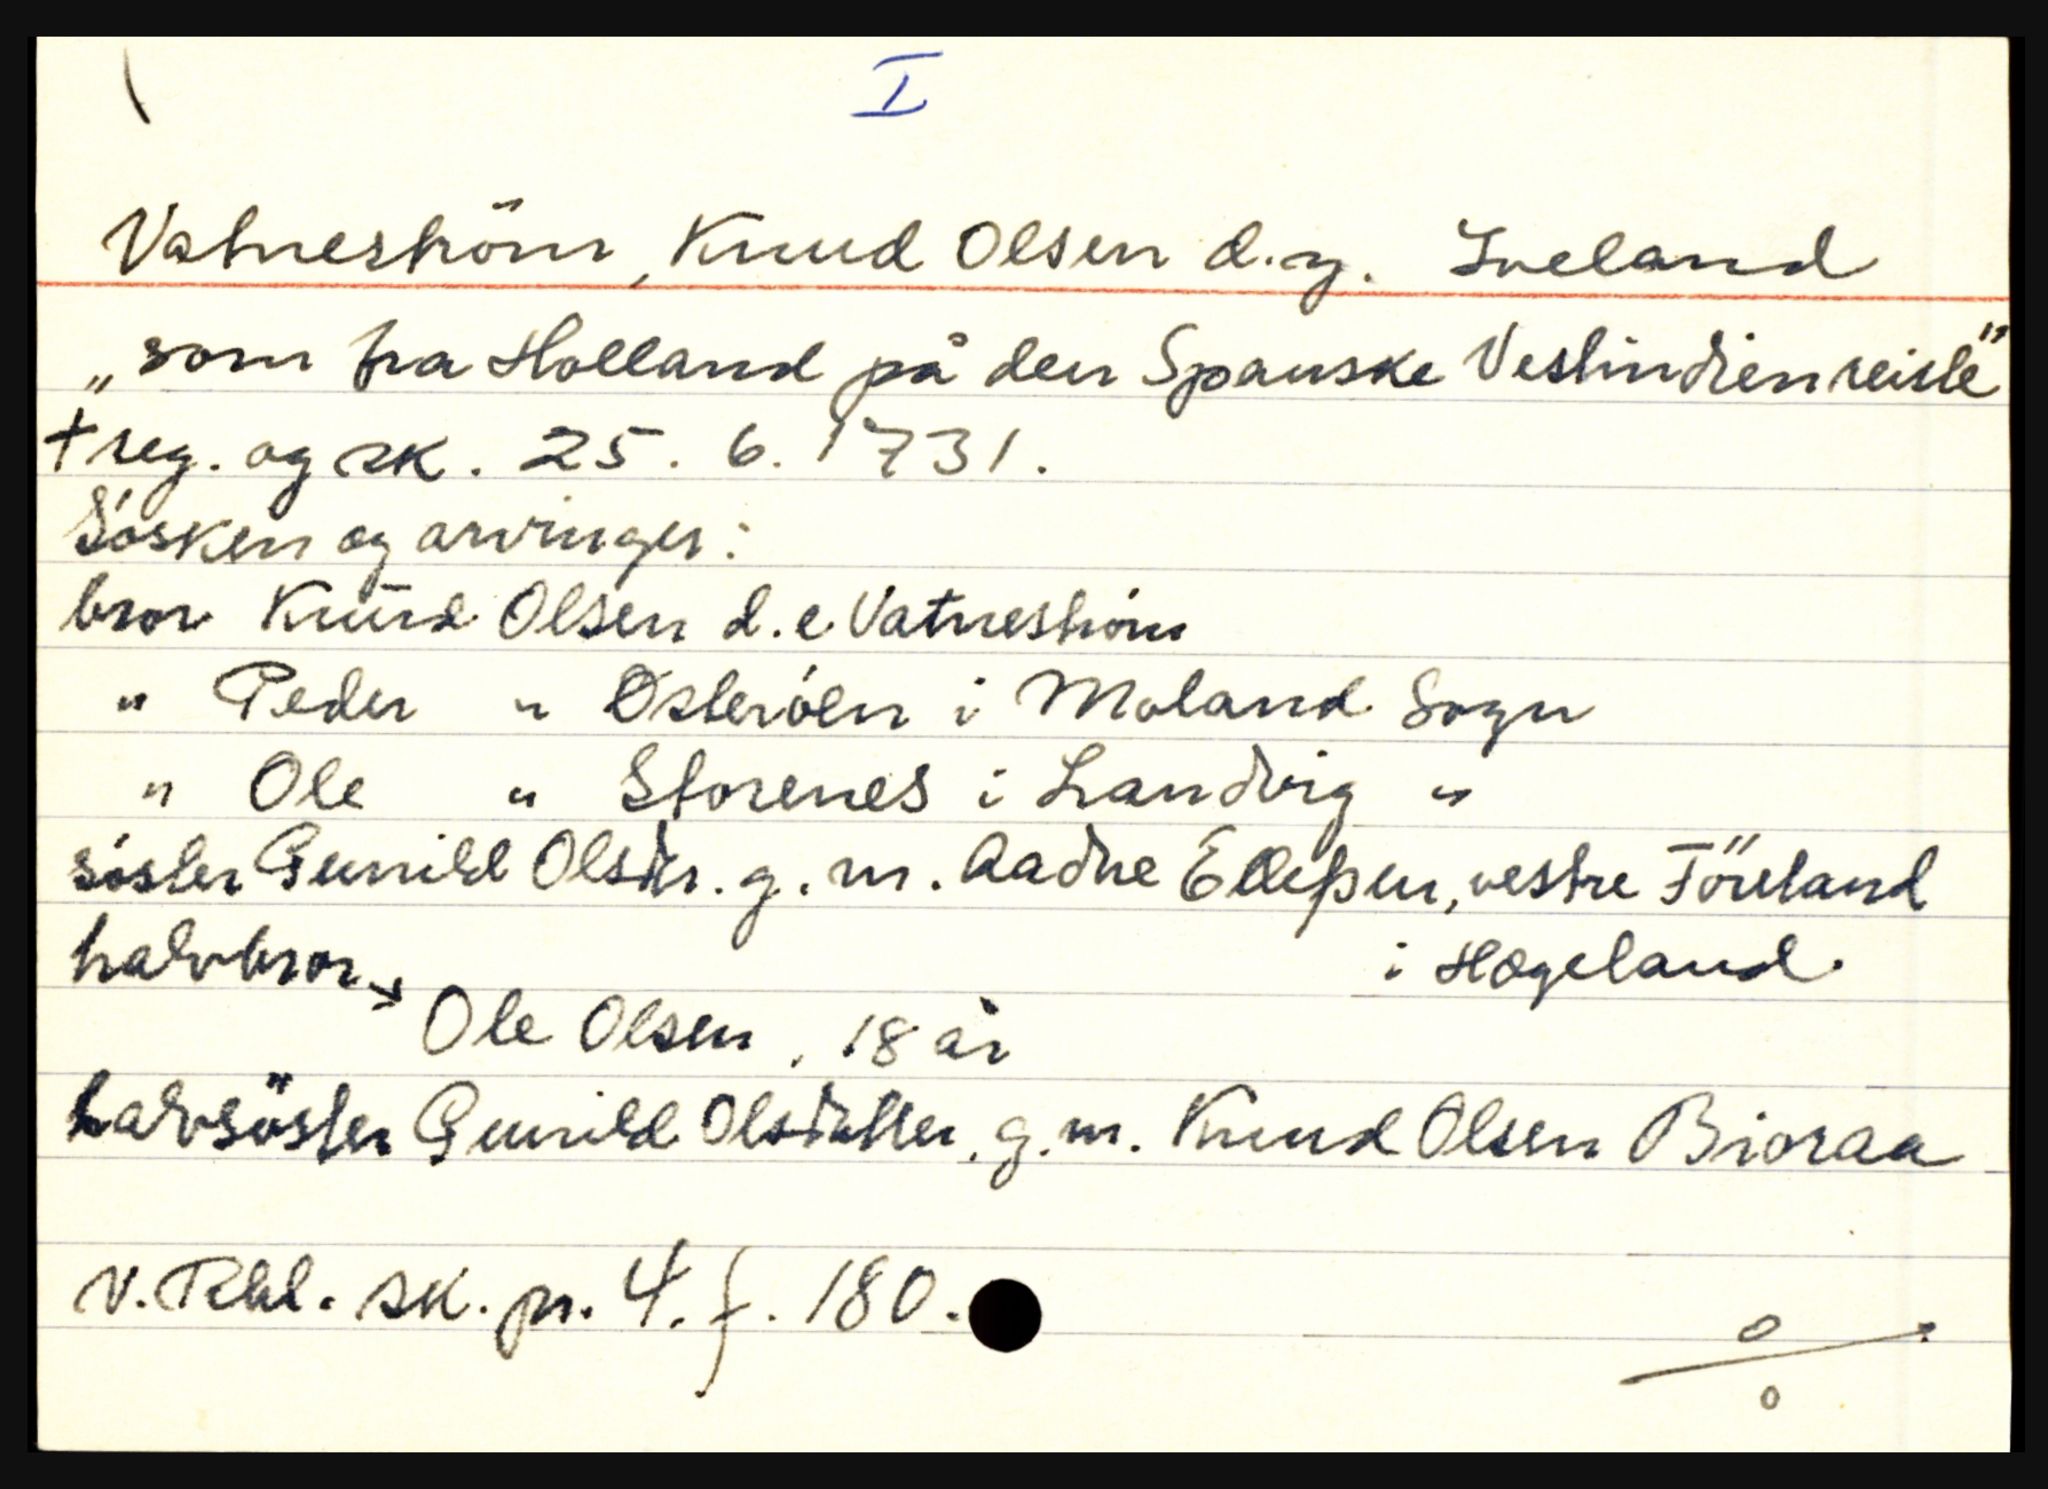 I
Vatneström, Knud Olsen d.y. Iveland
„som fra Holland på den Spanske Vestindien reiste"
† reg. og sk. 25. 6. 1731.
Søsken og arvinger:
bror Knud Olsen d.e. Vatneström
" Peder " Østerøen i Moland Sogn
" Ole " Storenes i Landvig "
søster Gunild Olsdtr. g. m. Aadne Elleßen, vestre Föreland
halvbror → i Hægeland.
Ole Olsen, 18 år
halvsöster Gunild Olsdatter, g. m. Knud Olsen Bioraa
V. Rbl. sk. pr. 4. f. 180.